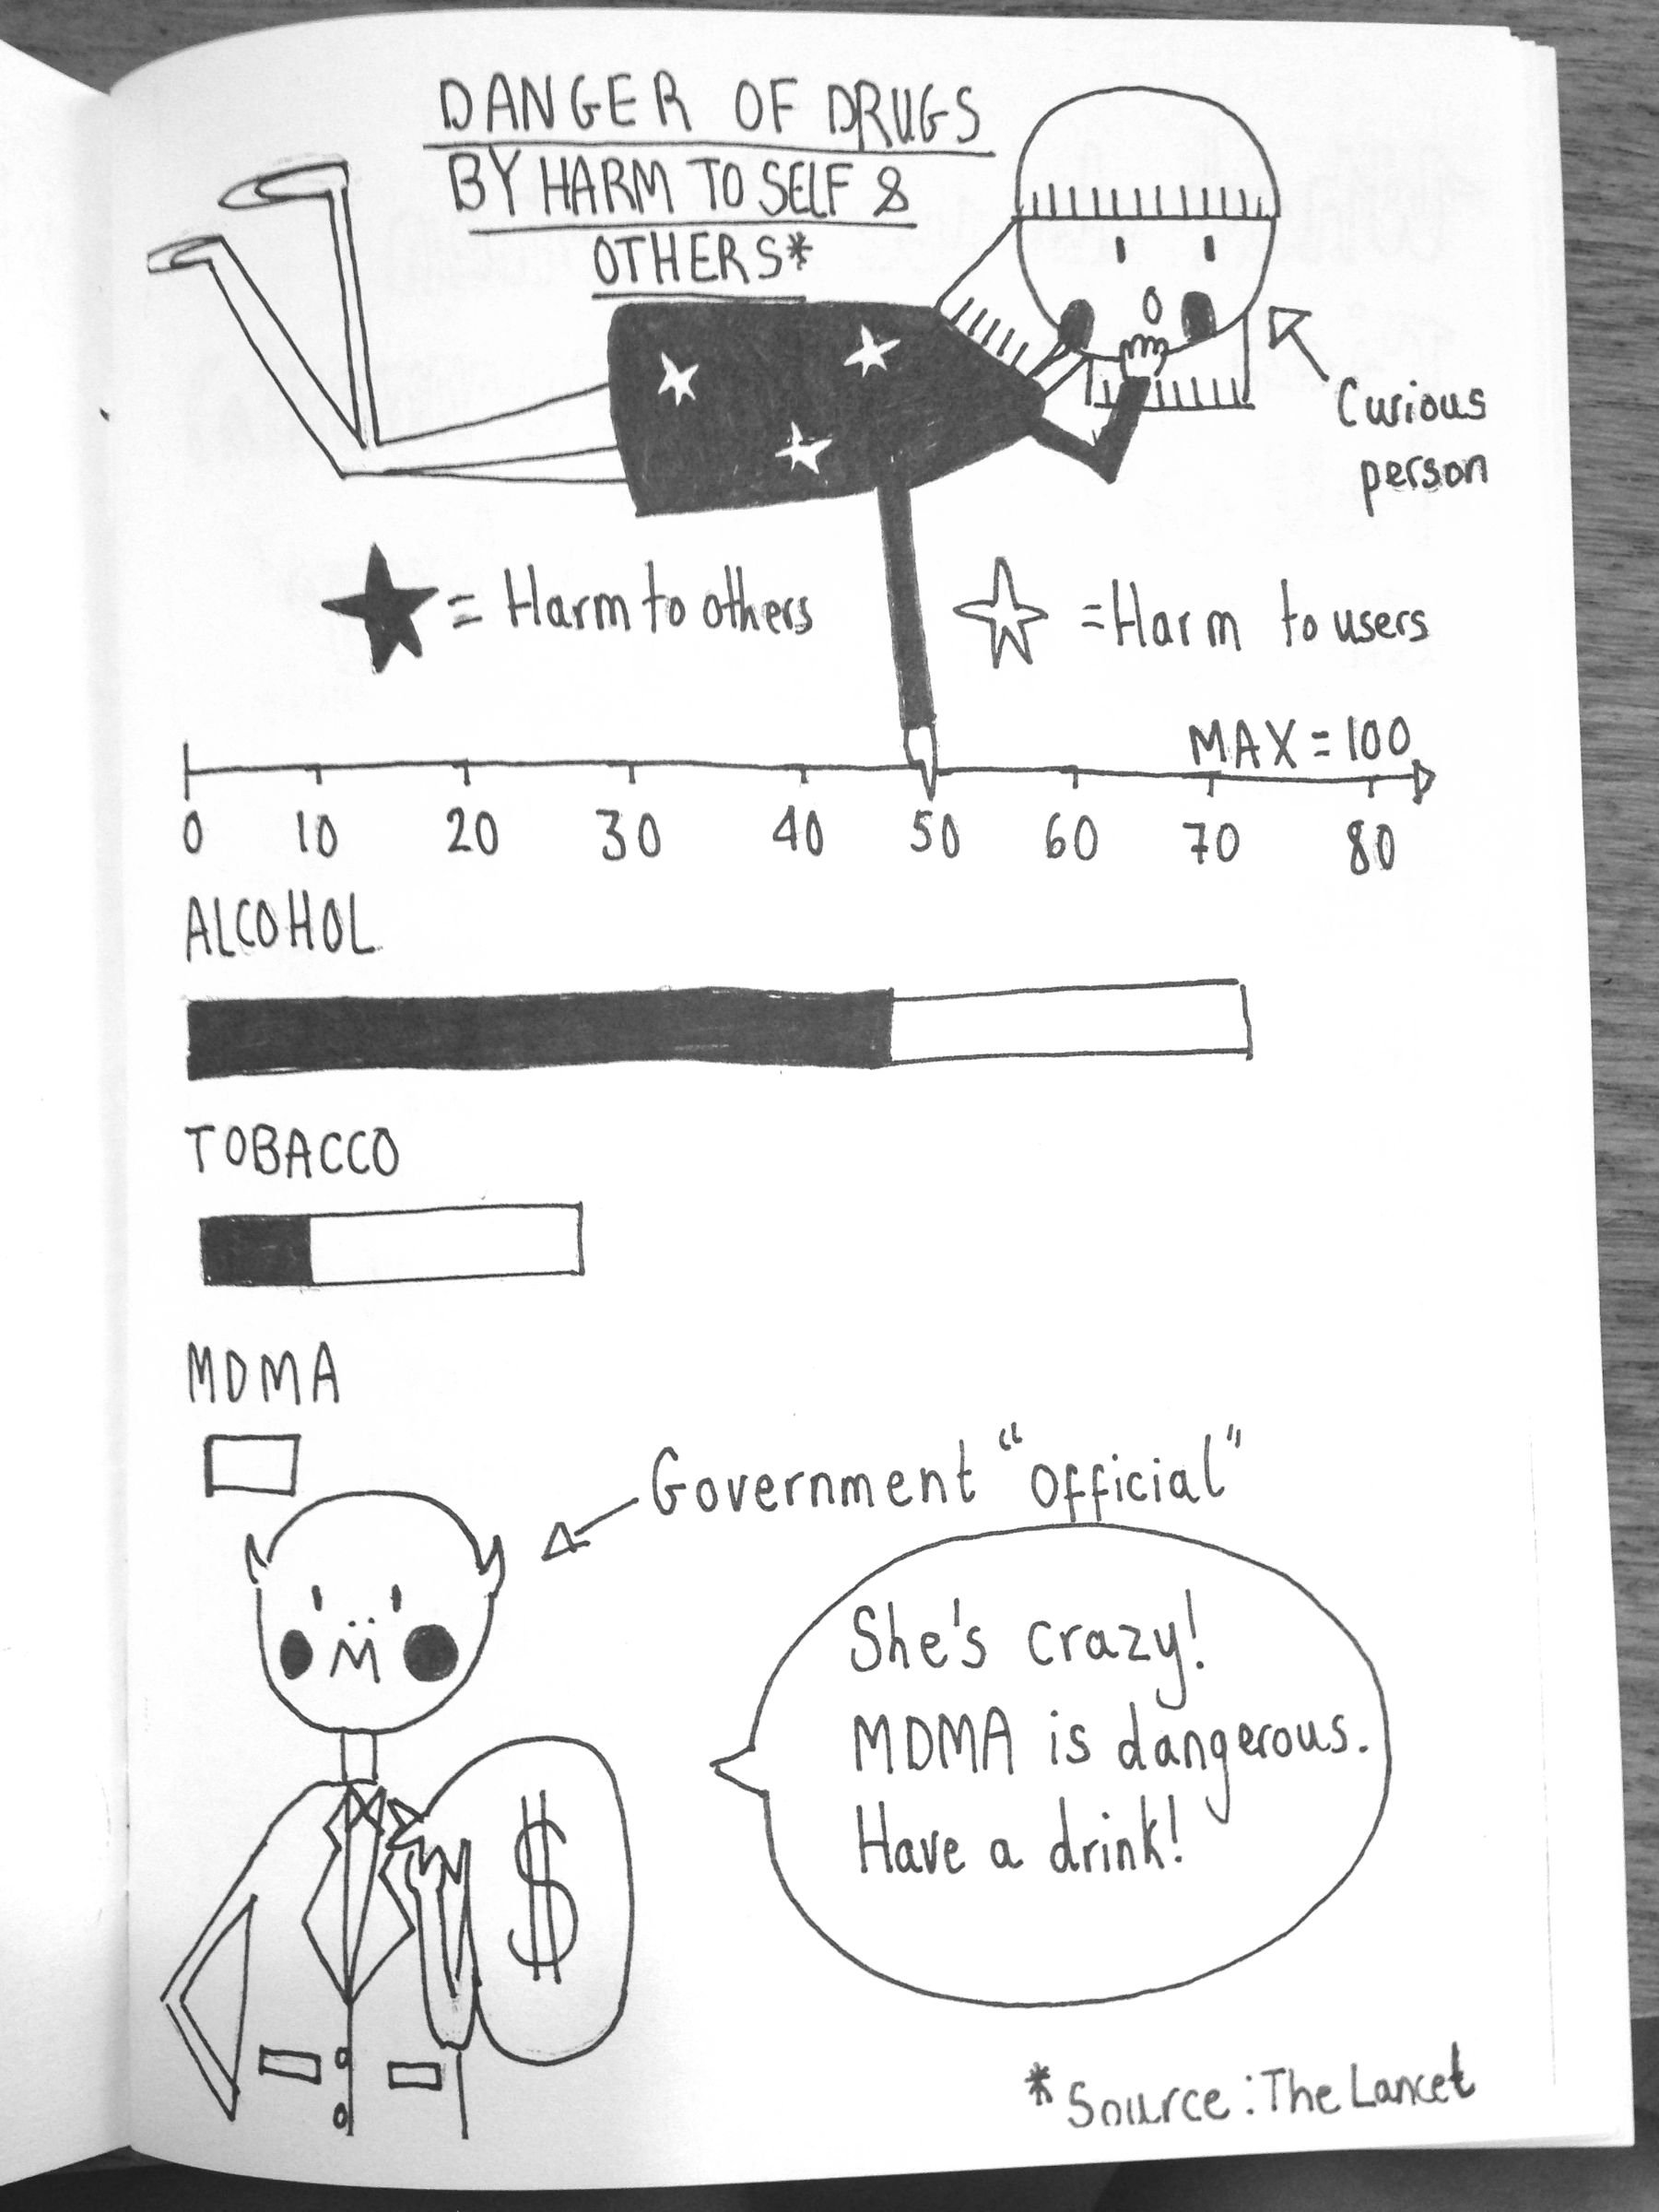 DANGER OF DRUGS
BY HARM TO SELF &
OTHERS*
Curious
person
= Harm to others
= Harm to users
MAX = 100
0 10 20 30 40 50 60 70 80
ALCOHOL
TOBACCO
MDMA
Government "official"
She's crazy!
MDMA is dangerous.
Have a drink!
$
*Source: The Lancet